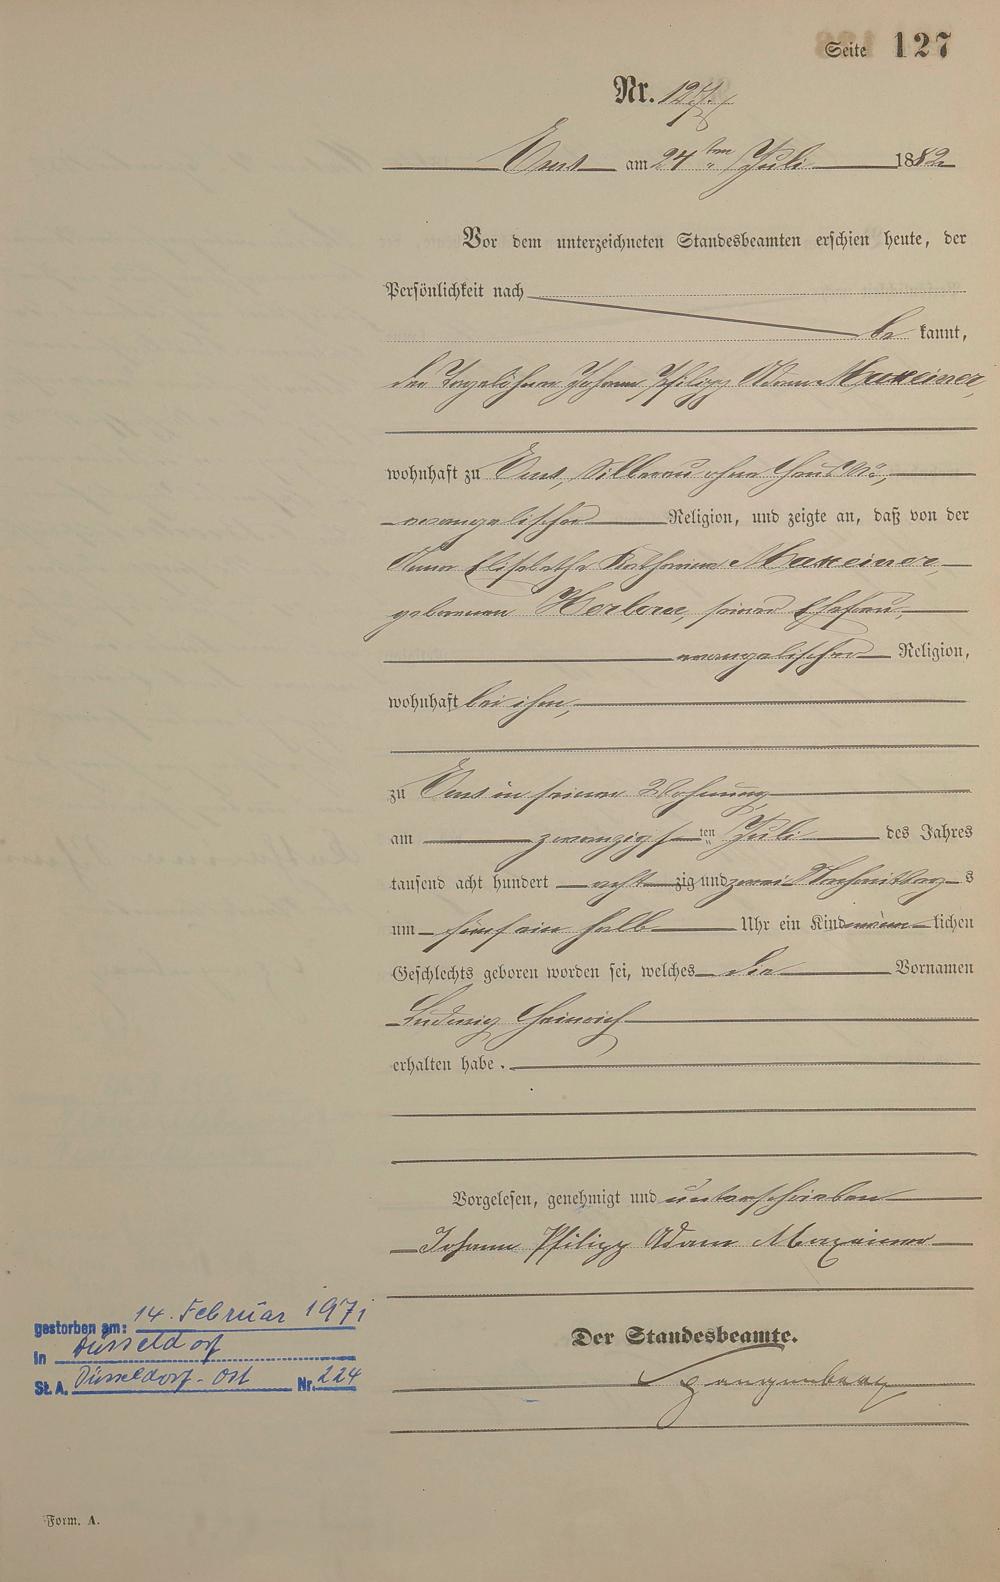 Seite 127
Nr. 127.
Ems am 24ten Juli 1882
Vor dem unterzeichneten Standesbeamten erschien heute, der
Persönlichkeit nach
be kannt,
der Tagelöhner Johann Philipp Adam Maxeiner,
wohnhaft zu Ems, Silberau ohne Haus No,
evangelischer Religion, und zeigte an, daß von der
Anna Elisabetha Katharina Maxeiner,
geborenen Horlow, seiner Ehefrau,
evangelischer Religion,
wohnhaft bei ihm,
zu Ems in seiner Wohnung
am zwanzigsten Juli des Jahres
tausend acht hundert achtzig und zwei Nachmittags
um fünf ein halb Uhr ein Kind männlichen
Geschlechts geboren worden sei, welches die Vornamen
Ludwig Heinrich
erhalten habe.
Vorgelesen, genehmigt und unterschrieben
Johann Philipp Adam Maxeiner
gestorben am: 14. Februar 1971
Der Standesbeamte.
in Düsseldorf
St. A. Düsseldorf-Ost Nr. 224
Form. A.